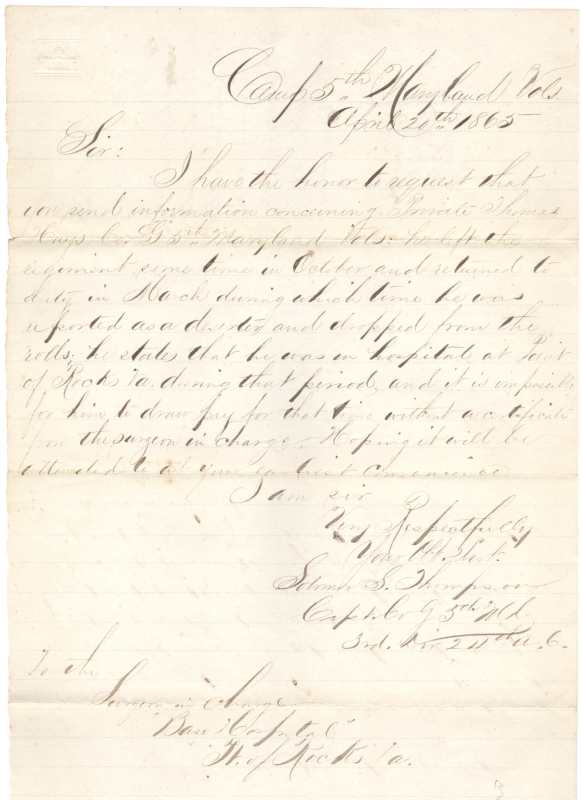 Camp 5th Maryland Vols.
April 20th 1865
Sir:
I have the honor to request that
you send information concerning Private Thomas
Co. G 5th Maryland Vols: he left the
regiment some time in October and returned to
duty in March during which time he was
reported as a deserter and dropped from the
rolls; he states that he was in hospital at Point
of Rocks Va. during that period, and it is impossible
for him to draw pay for that time without a certificate
from the surgeon in charge. Hoping it will be
attended to at your earliest convenience
I am sir
Very Respectfully
Your Obt. Servt.
S. Thompson
Capt. Co G 5th Md
3rd. Div 24th A. C.
To the
Surgeon in charge
Base Hospital
Pt. of Rocks Va.